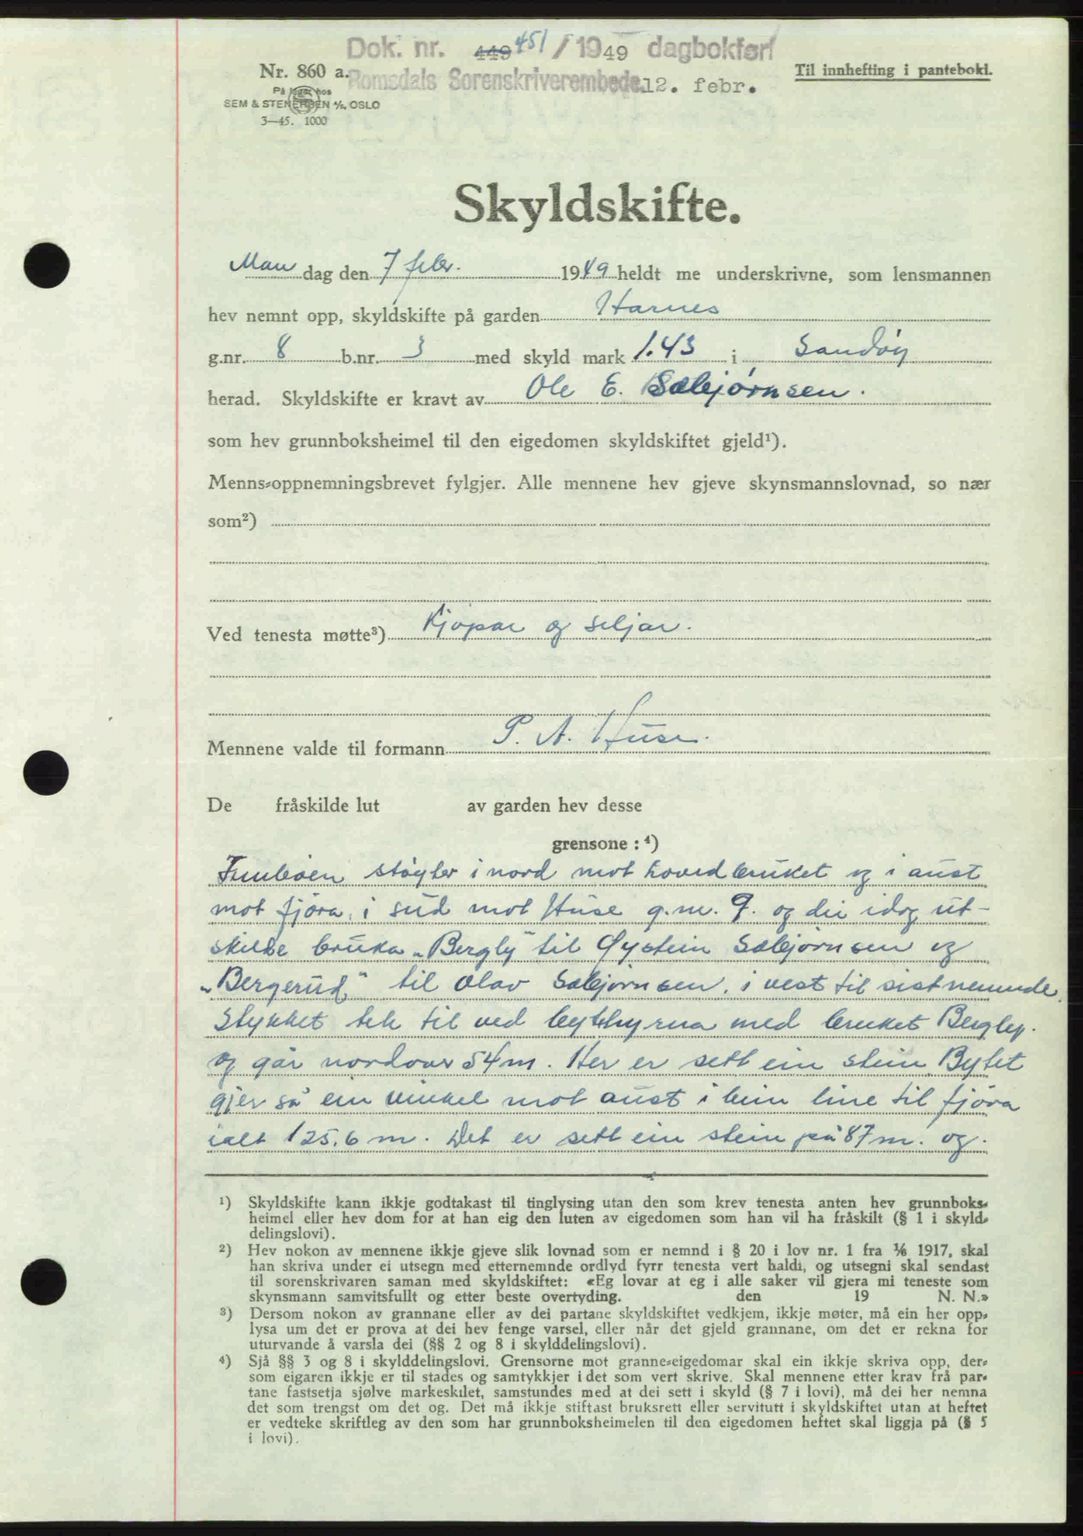 Dok. nr. 449 451 / 1949 dagbokført
Nr. 860 a. Romsdals Sorenskriverembede 12. febr.
Til innhefting i pantebokl.
På lager hos
SEM & STENERSEN A/S, OSLO
3—45. 1000
Skyldskifte.
Man dag den 7 febr. 1949 heldt me underskrivne, som lensmannen
hev nemnt opp, skyldskifte på garden Harnes
g.nr. 8 b.nr. 3 med skyld mark 1.43 i Sandøy
herad. Skyldskifte er kravt av Ole E. Sæbjørnsen.
som hev grunnboksheimel til den eigedomen skyldskiftet gjeld¹).
Menns-oppnemningsbrevet fylgjer. Alle mennene hev gjeve skynsmannslovnad, so nær
som²)
Ved tenesta møtte³) Kjøpar og seljar.
Mennene valde til formann P. A. Huse.
De fråskilde lut av garden hev desse
grensone : ⁴)
støyter i nord mot hovedbruket og i aust
mot fjøra, i sud mot Huse g.nr. 9. og dei idag ut-
skilde bruka „Bergly" til Øystein Sæbjørnsen og
„Bergerud" til Olav Sæbjørnsen. i vest til sistnemnde.
Stykket tek til ved med bruket Bergly.
og går nordover 54 m. Her er sett ein stein Bytet
gjer så ein vinkel mot aust i bein line til fjøra
ialt 125,6 m. Det er sett ein stein på 87 m. og
¹) Skyldskifte kann ikkje godtakast til tinglysing utan den som krev tenesta anten hev grunnboks-
heimel eller hev dom for at han eig den luten av eigedomen som han vil ha fråskilt (§ 1 i skyld-
delingslovi).
²) Hev nokon av mennene ikkje gjeve slik lovnad som er nemnd i § 20 i lov nr. 1 fra 1/6 1917, skal
han skriva under ei utsegn med etternemnde ordlyd fyrr tenesta vert haldi, og utsegni skal sendast
til sorenskrivaren saman med skyldskiftet: «Eg lovar at eg i alle saker vil gjera mi teneste som
skynsmann samvitsfullt og etter beste overtyding. den 19 N. N.»
³) Dersom nokon av grannane eller av dei partane skyldskiftet vedkjem, ikkje møter, må ein her opp-
lysa um det er prova at dei hev fenge varsel, eller når det gjeld grannane, om det er rekna for
uturvande å varsla dei (§§ 2 og 8 i skylddelingslovi).
⁴) Sjå §§ 3 og 8 i skylddelingslovi. Grensorne mot granne-eigedomar skal ein ikkje skriva opp, der-
som eigaren ikkje er til stades og samtykkjer i det som vert skrive. Skal mennene etter krav frå par-
tane fastsetja sjølve markeskilet, samstundes med at dei sett i skyld (§ 7 i lovi), må dei her nemna
det som trengst om det og. Det må ikkje stiftast bruksrett eller servitutt i skyldskiftet utan at heftet
er vedteke skriftleg av den som har grunnboksheimelen til den eigedomen heftet skal liggja på (§ 5
i lovi).